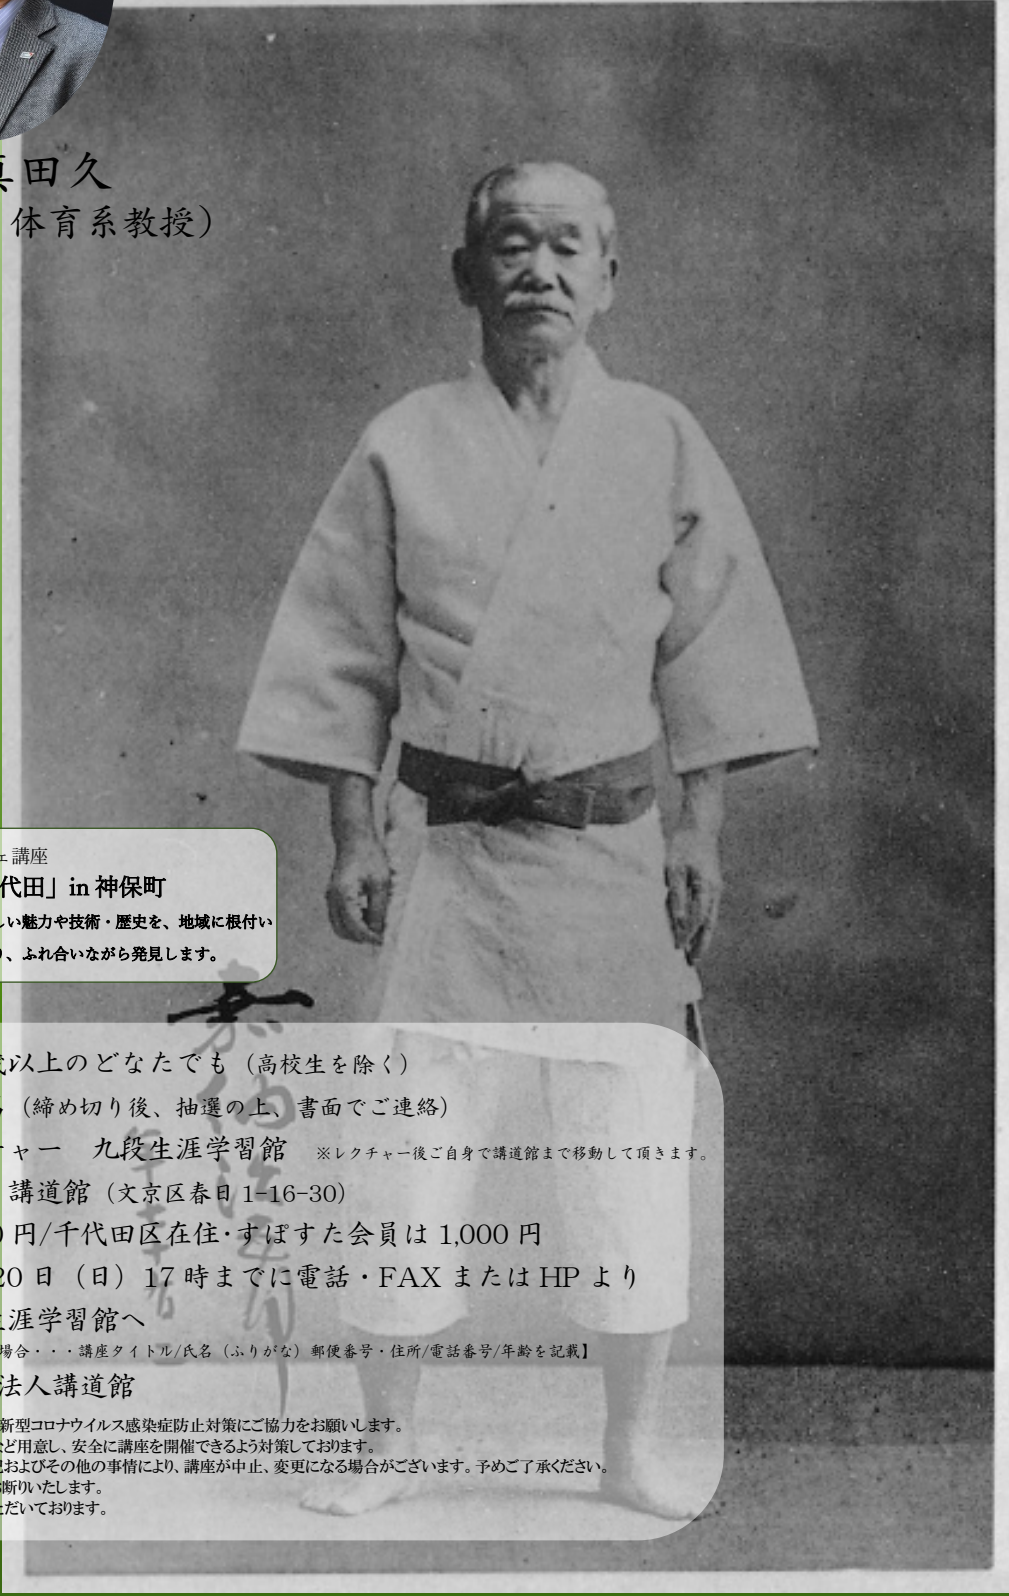 真田久
体育系教授）
ェ講座
代田」in 神保町
しい魅力や技術・歴史を、地域に根付い
り、ふれ合いながら発見します。
嘉納治五郎
年七十二
歳以上のどなたでも（高校生を除く）
（締め切り後、抽選の上、書面でご連絡）
チャー　九段生涯学習館　※レクチャー後ご自身で講道館まで移動して頂きます。
講道館（文京区春日 1-16-30）
0 円/千代田区在住・すぽすた会員は 1,000 円
20 日（日）17 時までに電話・FAX または HP より
生涯学習館へ
場合・・・講座タイトル/氏名（ふりがな）郵便番号・住所/電話番号/年齢を記載】
法人講道館
新型コロナウイルス感染症防止対策にご協力をお願いします。
など用意し、安全に講座を開催できるよう対策しております。
況およびその他の事情により、講座が中止、変更になる場合がございます。予めご了承ください。
お断りいたします。
ただいております。